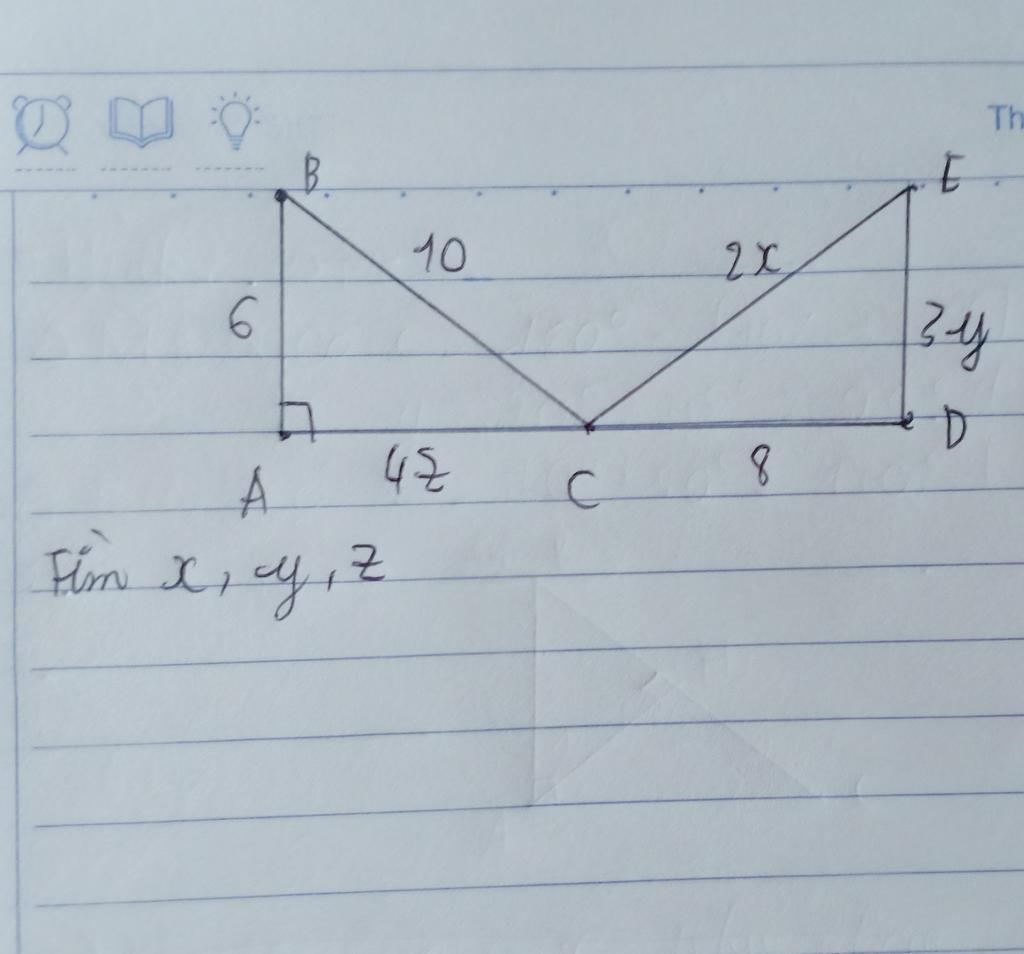 Th
B
E
10
2x
6
3y
D
A
4z
C
8
Tìm x, y, z